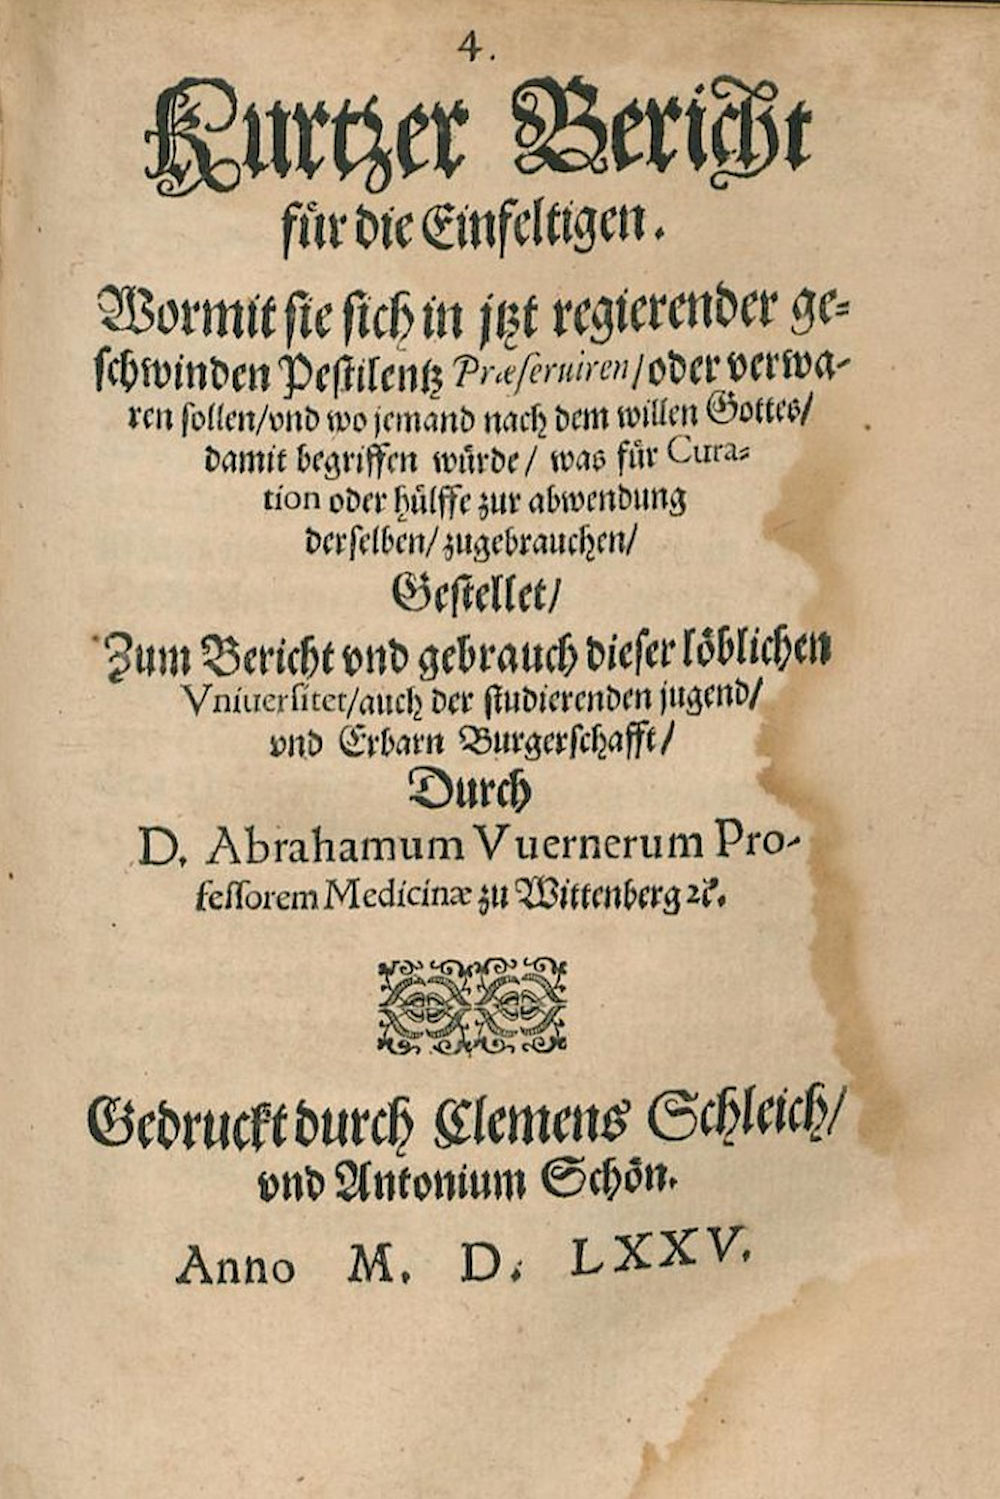 4.
Kurtzer Bericht
für die Einfeltigen.
Wormit sie sich in jtzt regierender ge-
schwinden Pestilentz Præseruiren/oder verwa-
ren sollen/vnd wo jemand nach dem willen Gottes/
damit begriffen würde/ was für Cura-
tion oder hülffe zur abwendung
derselben/ zugebrauchen/
Gestellet/
Zum Bericht vnd gebrauch dieser löblichen
Vniuersitet/auch der studierenden jugend/
vnd Erbarn Burgerschafft/
Durch
D. Abrahamum Vuernerum Pro-
fessorem Medicinæ zu Wittenberg ꝛc.
Gedruckt durch Clemens Schleich/
vnd Antonium Schön.
Anno M. D. LXXV.